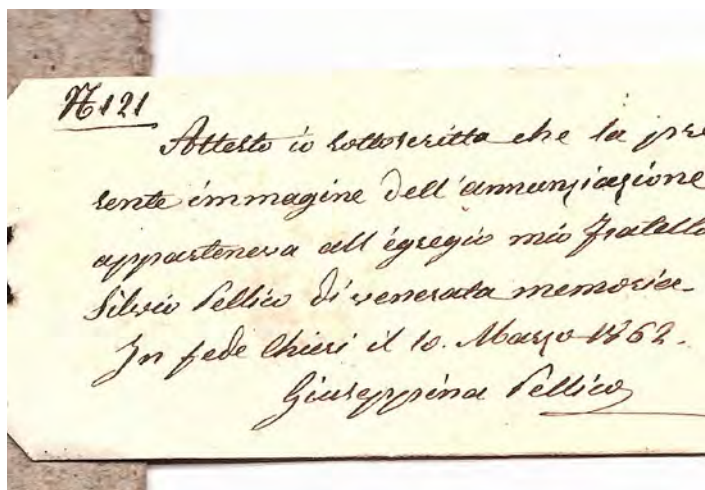 N 121
Attesto io sottoscritta che la pre
sente immagine dell'annunziazione
apparteneva all'egregio mio fratello
Silvio Pellico di venerata memoria.
In fede Chieri il 10. Marzo 1862.
Giuseppina Pellico